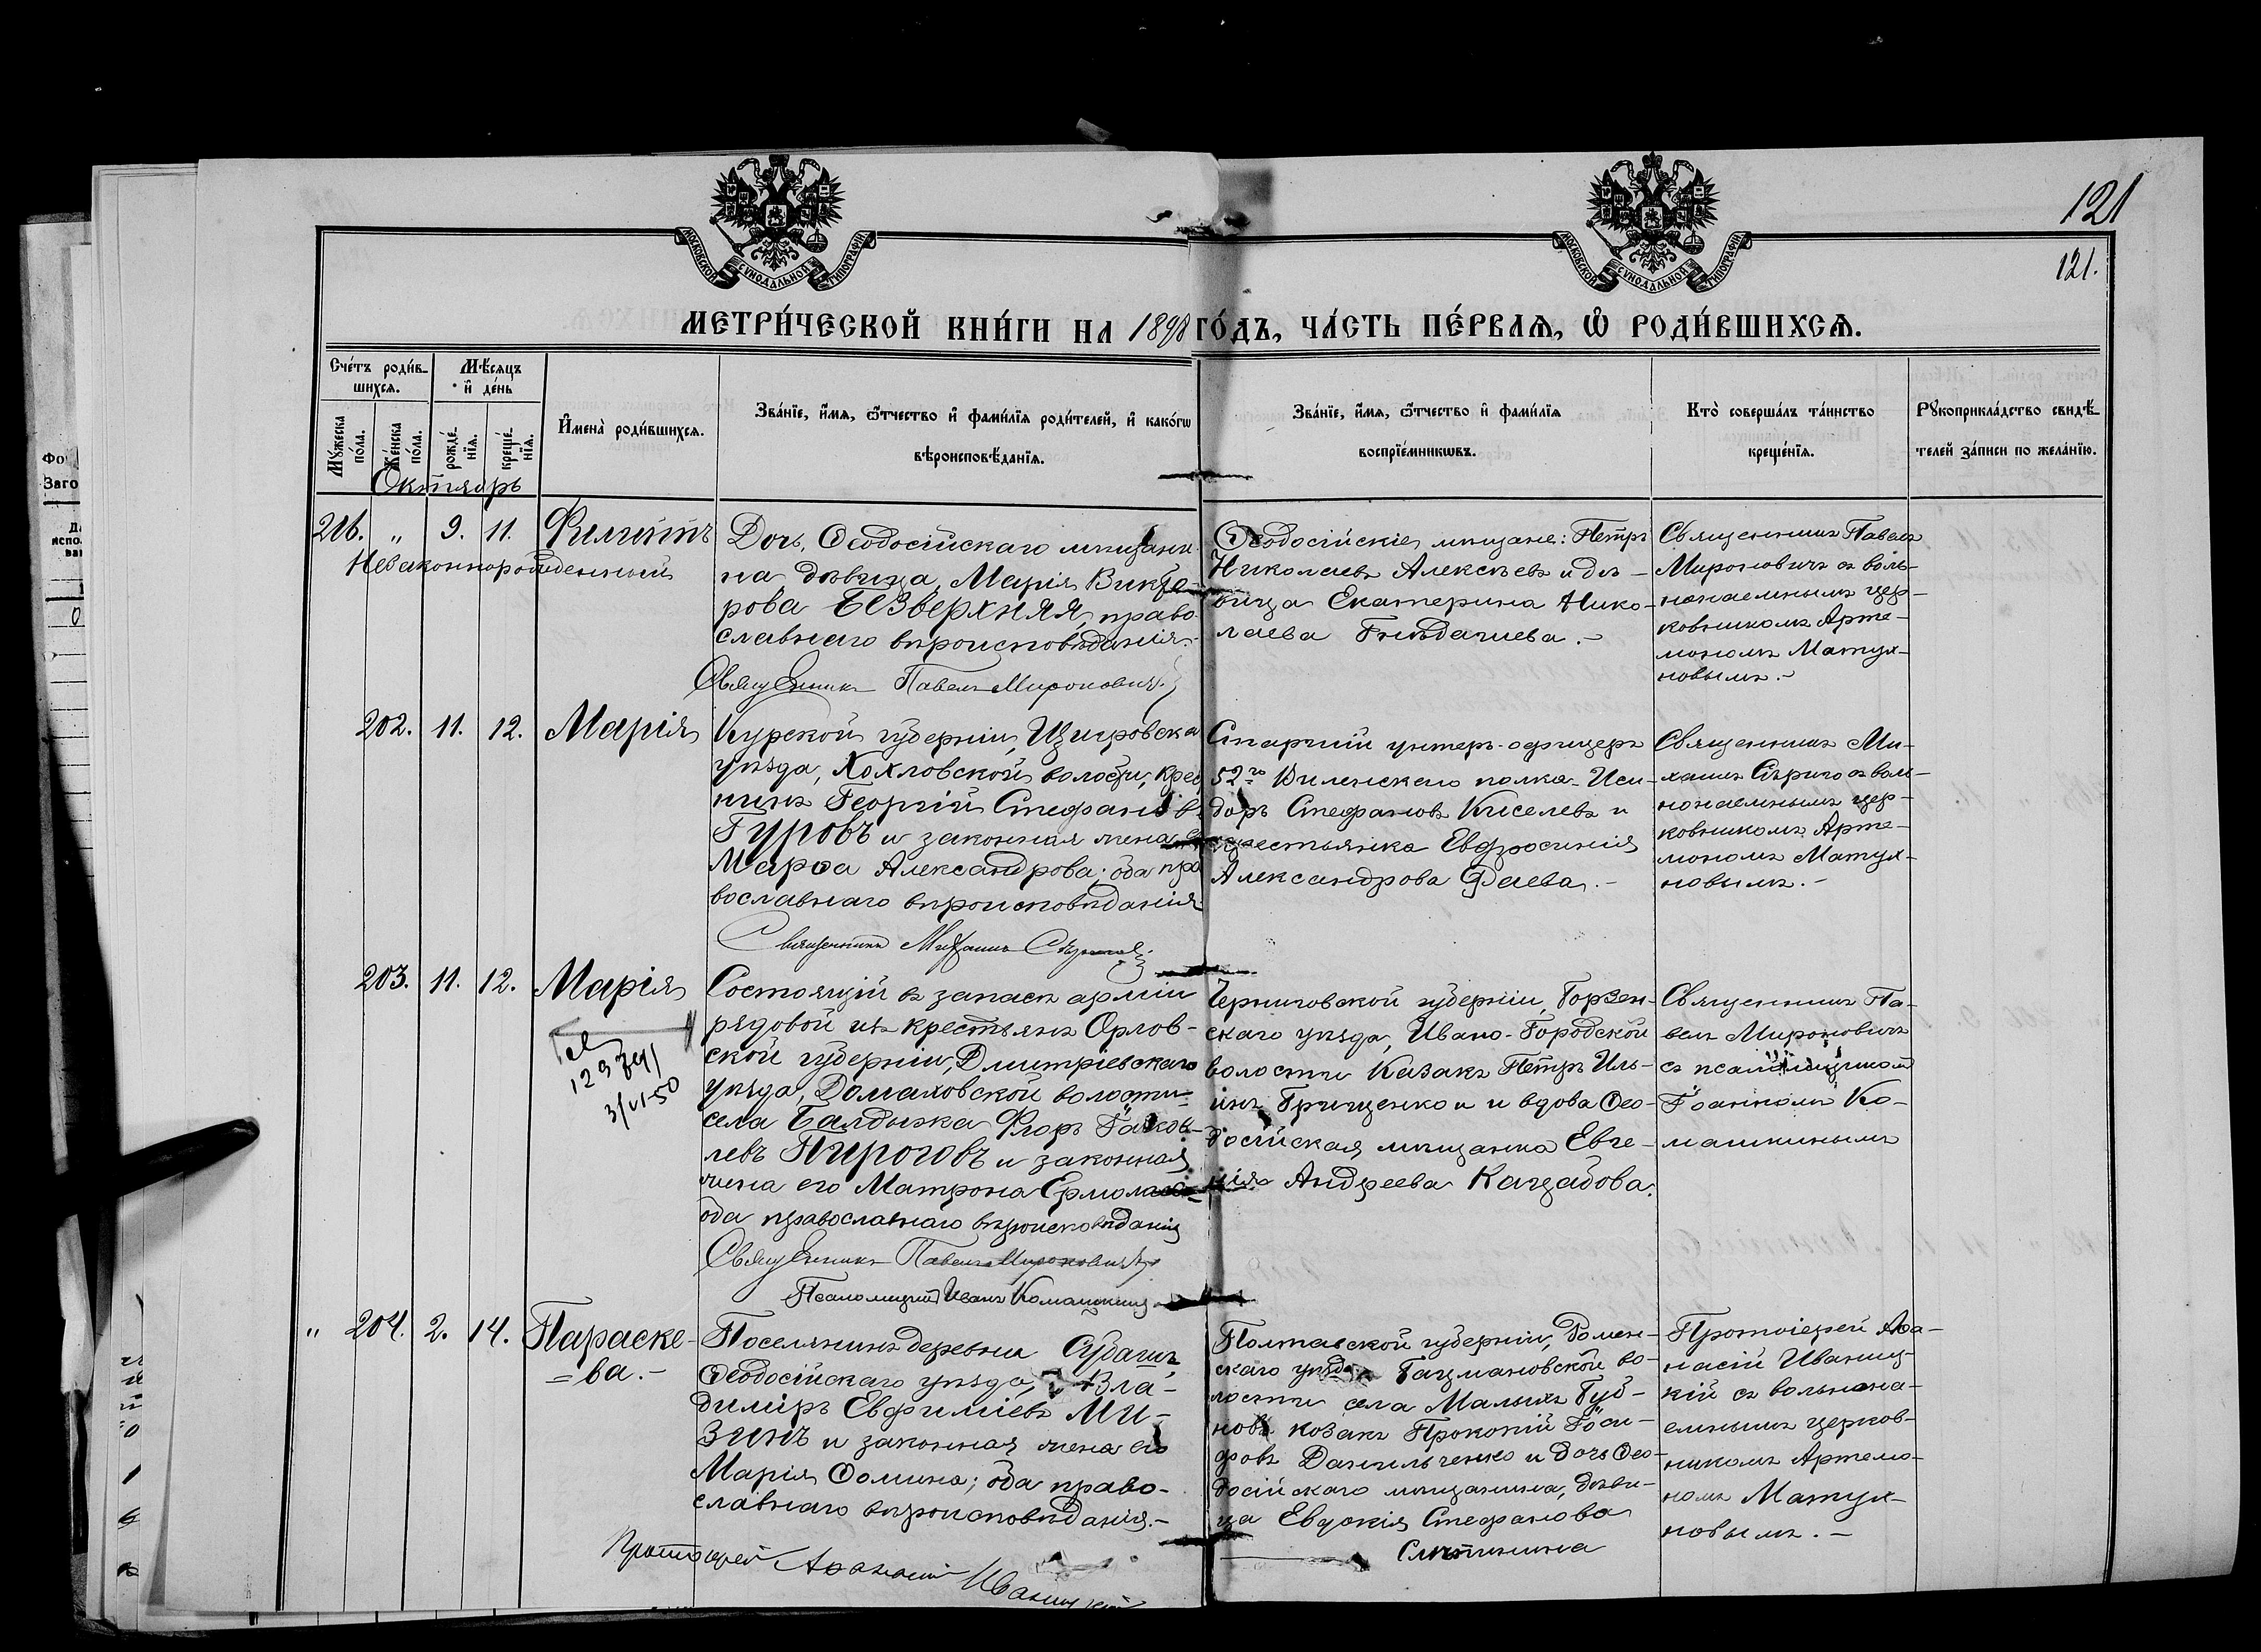 121
121.
МОСКОВСКОЙ СѴНОДАЛЬНОЙ ТИПОГРАФІИ
МОСКОВСКОЙ СѴНОДАЛЬНОЙ ТИПОГРАФІИ
МЕТРИ́ЧЕСКОЙ КНИ́ГИ НА 1898 ГО́ДЪ, ЧА́СТЬ ПЕ́РВАѦ, Ѽ РОДИ́ВШИХСѦ.
Сче́тъ роди́в-
шихсѧ.
Мѣ́сяцъ
и҆ де́нь
Мꙋ́жеска
по́ла.
Же́нска
по́ла.
рожде́-
нїѧ.
креще́-
нїѧ.
И҆мена̀ роди́вшихсѧ.
Зва́нїе, и҆́мѧ, ѻ҆́тчество и҆ фами́лїѧ роди́телей, и҆ како́гѡ
вѣроисповѣ́данїѧ.
Зва́нїе, и҆́мѧ, ѻ҆́тчество и҆ фами́лїѧ
воспрїе́мникѡвъ.
Кто̀ соверша́лъ та́инство
креще́нїѧ.
Рꙋкоприкла́дство свидѣ́-
телей за́писи по жела́нїю.
Октябрь
216. „ 9. 11. Филиппъ
Незаконнорожденный
Дочь Ѳеодосійскаго мѣщани-
на девица Марія Викто-
рова Безверхняя, право-
славнаго вѣроисповѣданія.
Священникъ Павелъ Мироновичъ
Ѳеодосійскіе мѣщане: Петръ
Николаевъ Алексѣевъ и дѣ-
вица Екатерина Нико-
лаева Гнѣдачиева.-
Священникъ Павелъ
Мироновичъ съ воль-
нонаемнымъ цер-
ковникомъ Арте-
мономъ Матух-
новымъ.-
202. 11. 12. Марія
Курской губерніи, Щигровска
уѣзда, Хохловской волости, крес
нинъ Георгій Стефановъ
Гуровъ и законная жена его
Марѳа Александрова; оба пра
вославнаго вѣроисповѣданія
Священникъ Михаилъ
Старшій унтеръ-офицеръ
52го Виленскаго полка Иси-
доръ Стефановъ Киселевъ и
крестьянка Евфросинія
Александрова Фаева.-
Священникъ Ми-
хаилъ Сѣрико съ воль-
нонаемнымъ цер-
ковникомъ Арте-
мономъ Матух-
новымъ.-
203. 11. 12. Марія
3/VI-50
Состоящій въ запасѣ арміи
рядовой изъ крестьянъ Орлов-
ской губерніи, Дмитріевскаго
уѣзда, Домаховской волости
села Балдыжа Флоръ Яков-
левъ Пироговъ и законная
жена его Матрона Ермолаева
оба православнаго вѣроисповѣданія
Священникъ Павелъ Мироновичъ
Псаломщикъ Иванъ Комашкинъ
Черниговской губерніи, Борзен-
скаго уѣзда, Ивано-Городской
волости казакъ Петръ Иль-
инъ Грищенко и вдова Ѳео-
досійская мѣщанка Евге-
нія Андреева Кацабова.
Священникъ Па-
велъ Мироновичъ
съ псаломщикомъ
Іоанномъ Ко-
машкинымъ
„ 204. 2. 14. Параске-
=ва.-
Поселянинъ деревни Субашъ
Ѳеодосійскаго уѣзда, Вла-
димиръ Евфиміевъ Ми-
зинъ и законная жена его
Марія Ѳомина; оба право-
славнаго вѣроисповѣданія.-
Протоіерей Аѳанасій Иваницкій
Полтавской губерніи, Ромен-
скаго уѣзда Гацмановской во-
лости села Малыхъ Буб-
новъ козакъ Прокопій Іоси-
фовъ Данильченко и дочь Ѳео-
досійскаго мѣщанина, дѣви-
ца Евдокія Стефанова
Смѣтинина
Протоіерей Аѳа-
насій Иваниц-
кій съ вольнона-
емнымъ церков-
никомъ Артемо-
номъ Матух-
новымъ.-